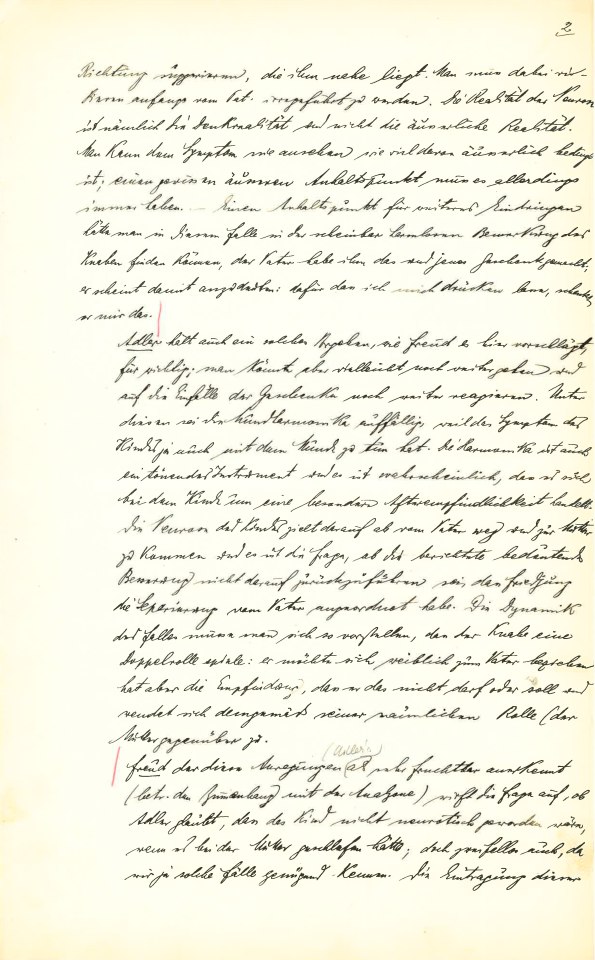 2
Richtung suggerieren, die ihm nahe liegt. Man muss dabei ris-
kieren anfangs vom Pat. irregeführt zu werden. Die Realität der Neurose
ist nämlich die Denkrealität und nicht die äusserliche Realität.
Man kann dem Symptom nie ansehen wie viel davon äusserlich bedingt
ist; einen gewissen äusseren Anhaltspunkt muss es allerdings
immer haben. — Einen Anhaltspunkt für weiteres Eindringen
hätte man in diesem Falle in der scheinbar harmlosen Bemerkung des
Knaben finden können, der Vater habe ihm das und jenes Geschenk gemacht,
er scheint damit anzudeuten: dafür dass ich mich drücken lasse, schenkt
er mir das.
Adler hält auch ein solches Vorgehen, wie Freud es hier vorschlägt,
für richtig; man könnte aber vielleicht noch weiter gehen und
auf die Einfälle der Geschenke noch weiter reagieren. Unter
diesen sei die Mundharmonika auffällig, weil das Symptom des
Kindes ja auch mit dem Munde zu tun hat. Die Harmonika ist auch
ein tönendes Instrument und es ist wahrscheinlich, dass es sich
bei dem Kinde um eine besondere Afterempfindlichkeit handelt.
Die Neurose des Kindes zielt darauf ab vom Vater weg und zur Mutter
zu kommen und es ist die Frage, ob die berichtete bedeutende
Besserung nicht darauf zurückzuführen sei, dass Friedjung
die Separierung vom Vater angeordnet habe. Die Dynamik
des Falles müsse man sich so vorstellen, dass der Knabe eine
Doppelrolle spiele: er möchte sich weiblich zum Vater beziehen
hat aber die Empfindung, dass er das nicht darf oder soll und
wendet sich demgemäss seiner männlichen Rolle (der
Mutter gegenüber) zu.
(Adler's)
Freud der diese Anregungen als sehr fruchtbar anerkennt
(betr. den Zusammenhang mit der Analzone) wirft die Frage auf, ob
Adler glaubt, dass das Kind nicht neurotisch geworden wäre,
wenn es bei der Mutter geschlafen hätte; doch zweifellos auch, da
wir ja solche Fälle genügend kennen. Die Eintragung dieser